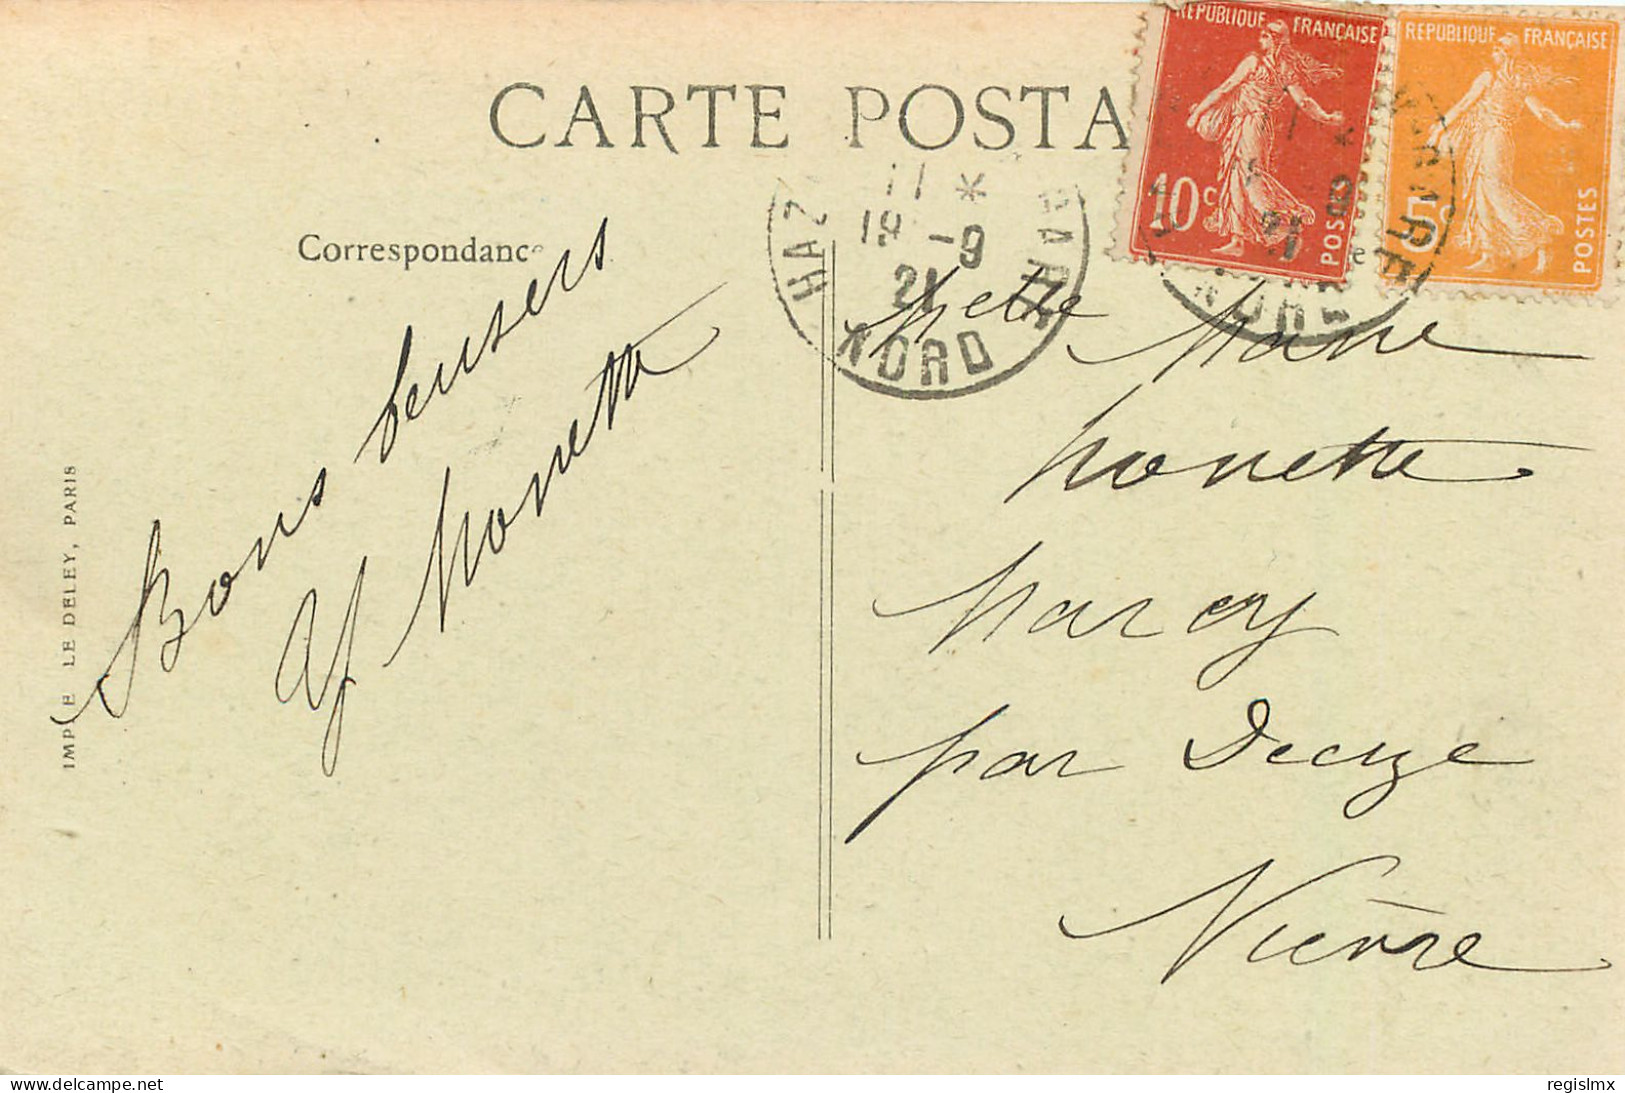 CARTE POSTA
RÉPUBLIQUE FRANÇAISE
10c
POSTES
REPUBLIQUE FRANÇAISE
5c
POSTES
Correspondance
11 *
18 -9
21
NORD
Bons baisers
Monette
Melle Marie
Monette
Marcy
par Decize
Nièvre
IMP E LE DELEY, PARIS
www.delcampe.net
regislmx